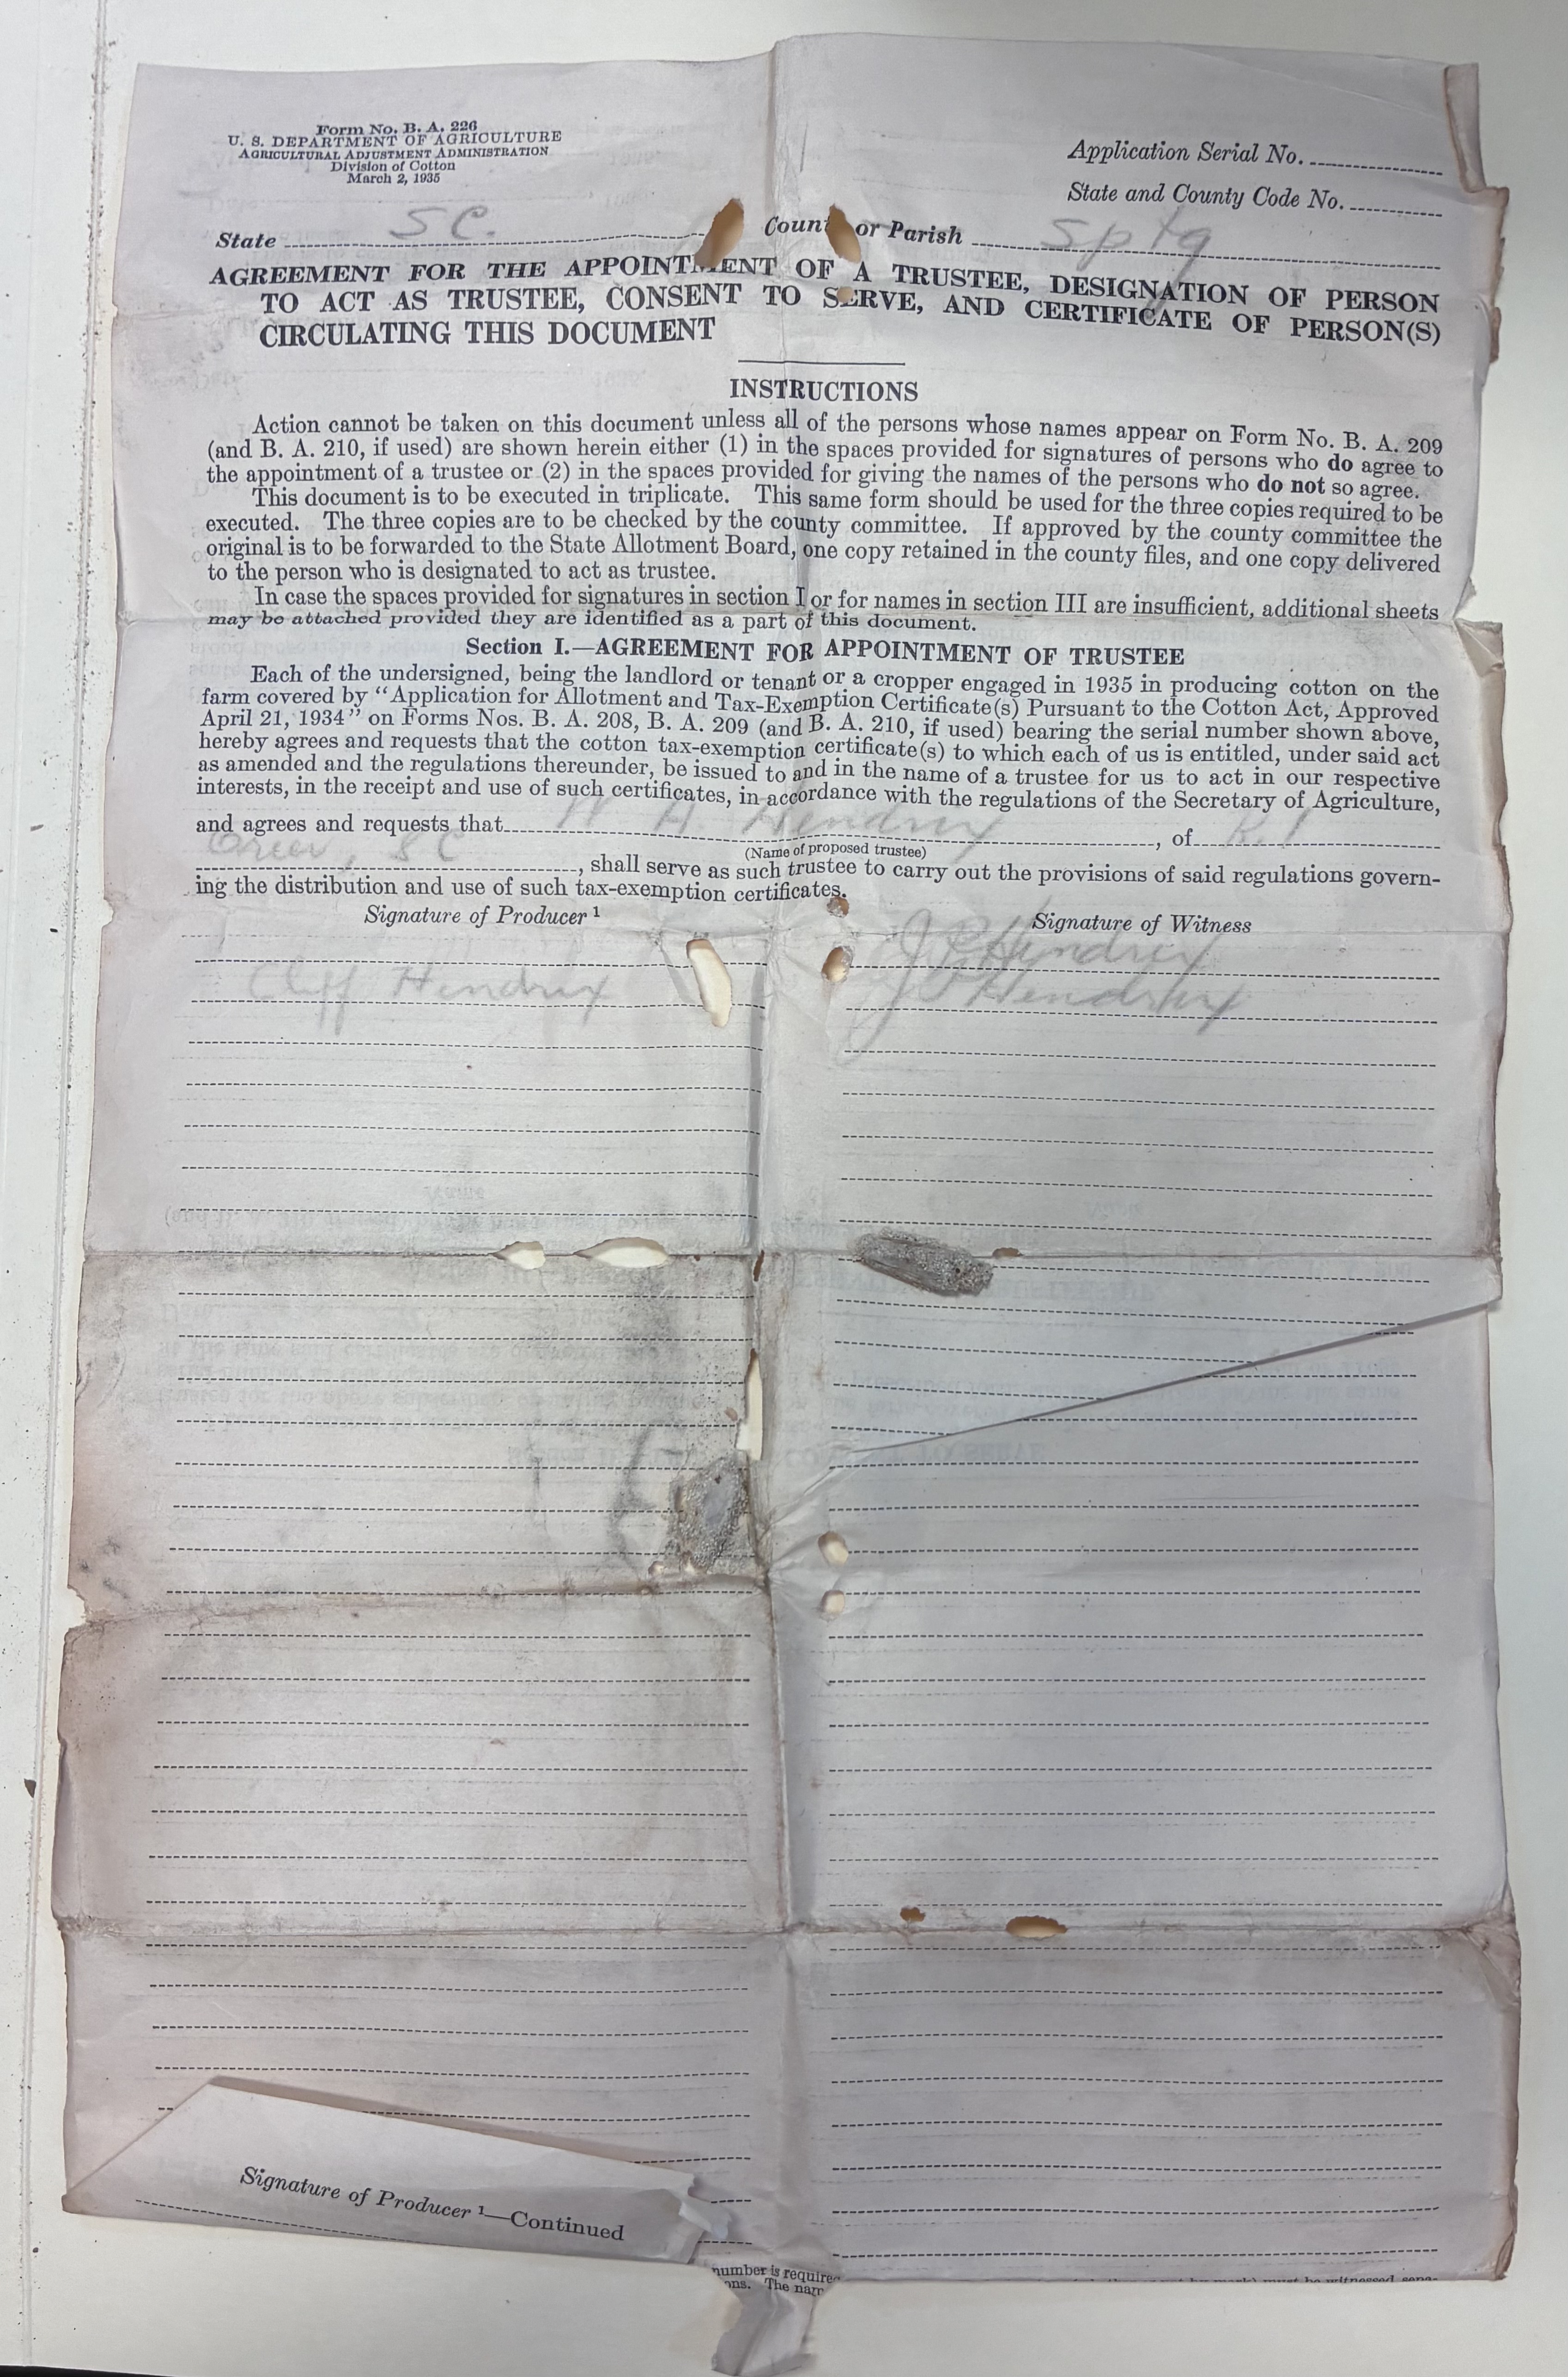 Form No. B. A. 226
U. S. DEPARTMENT OF AGRICULTURE
AGRICULTURAL ADJUSTMENT ADMINISTRATION
Division of Cotton
March 2, 1935
Application Serial No.
State and County Code No.
State S C. County or Parish Sptg
AGREEMENT FOR THE APPOINTMENT OF A TRUSTEE, DESIGNATION OF PERSON
TO ACT AS TRUSTEE, CONSENT TO SERVE, AND CERTIFICATE OF PERSON(S)
CIRCULATING THIS DOCUMENT
INSTRUCTIONS
Action cannot be taken on this document unless all of the persons whose names appear on Form No. B. A. 209
(and B. A. 210, if used) are shown herein either (1) in the spaces provided for signatures of persons who do agree to
the appointment of a trustee or (2) in the spaces provided for giving the names of the persons who do not so agree.
This document is to be executed in triplicate. This same form should be used for the three copies required to be
executed. The three copies are to be checked by the county committee. If approved by the county committee the
original is to be forwarded to the State Allotment Board, one copy retained in the county files, and one copy delivered
to the person who is designated to act as trustee.
In case the spaces provided for signatures in section I or for names in section III are insufficient, additional sheets
may be attached provided they are identified as a part of this document.
Section I.—AGREEMENT FOR APPOINTMENT OF TRUSTEE
Each of the undersigned, being the landlord or tenant or a cropper engaged in 1935 in producing cotton on the
farm covered by "Application for Allotment and Tax-Exemption Certificate(s) Pursuant to the Cotton Act, Approved
April 21, 1934" on Forms Nos. B. A. 208, B. A. 209 (and B. A. 210, if used) bearing the serial number shown above,
hereby agrees and requests that the cotton tax-exemption certificate(s) to which each of us is entitled, under said act
as amended and the regulations thereunder, be issued to and in the name of a trustee for us to act in our respective
interests, in the receipt and use of such certificates, in accordance with the regulations of the Secretary of Agriculture,
and agrees and requests that W H Hendrix, of R. 1
(Name of proposed trustee)
Greer, S C, shall serve as such trustee to carry out the provisions of said regulations govern-
ing the distribution and use of such tax-exemption certificates.
Signature of Producer 1 Signature of Witness
J P Hendrix
Cliff Hendrix J P Hendrix
Signature of Producer 1—Continued
number is require
ons. The nam
must be witnessed sepa-